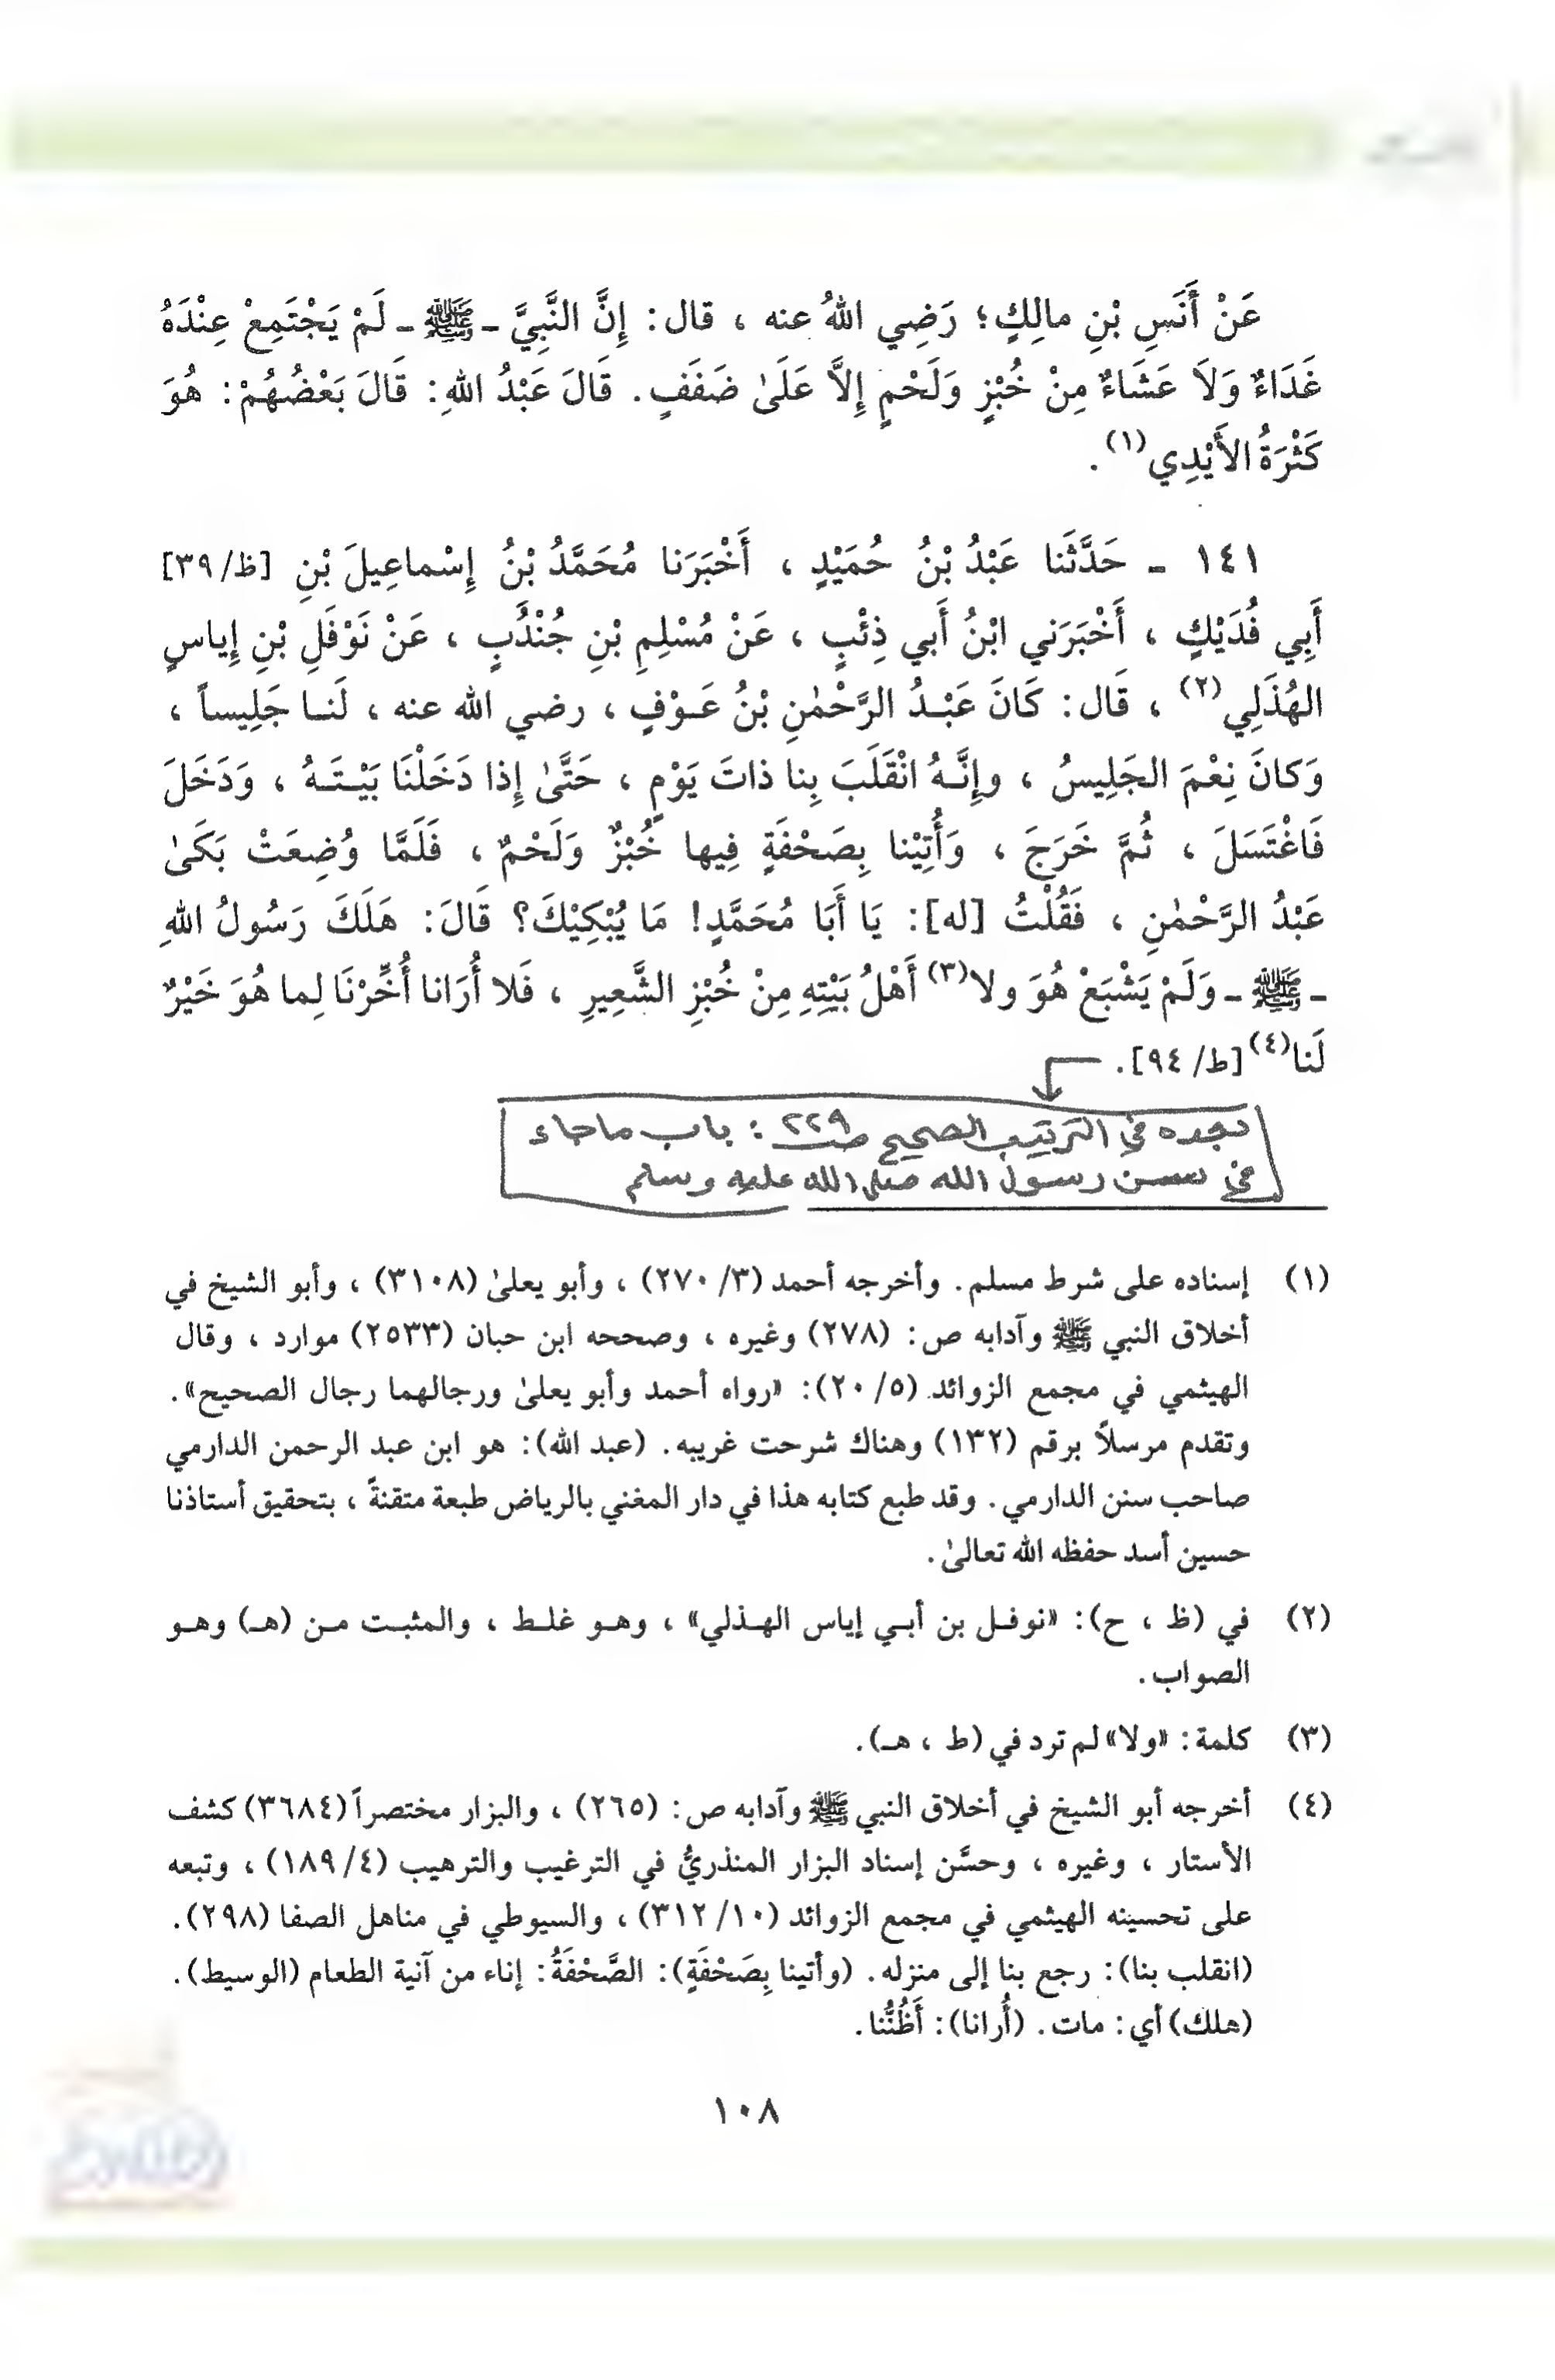 عَنْ أَنَسِ بْنِ مالِكٍ؛ رَضِي اللهُ عنه ، قال: إِنَّ النَّبِيَّ - ﷺ - لَمْ يَجْتَمِعْ عِنْدَهُ
غَدَاءٌ وَلاَ عَشَاءٌ مِنْ خُبْزٍ وَلَحْمٍ إِلاَّ عَلَىٰ ضَفَفٍ. قَالَ عَبْدُ اللهِ: قَالَ بَعْضُهُمْ: هُوَ
كَثْرَةُ الأَيْدِي(١).
١٤١ - حَدَّثَنا عَبْدُ بْنُ حُمَيْدٍ ، أَخْبَرَنا مُحَمَّدُ بْنُ إِسْماعِيلَ بْنِ [ظ/٣٩]
أَبِي فُدَيْكٍ ، أَخْبَرَني ابْنُ أَبي ذِئْبٍ ، عَنْ مُسْلِمِ بْنِ جُنْدُبٍ ، عَنْ نَوْفَلِ بْنِ إِياسٍ
الهُذَلِي(٢) ، قَال: كَانَ عَبْدُ الرَّحْمٰنِ بْنُ عَوْفٍ ، رضي الله عنه ، لَنا جَلِيساً ،
وَكانَ نِعْمَ الجَلِيسُ ، وإِنَّهُ انْقَلَبَ بِنا ذاتَ يَوْمٍ ، حَتَّىٰ إِذا دَخَلْنَا بَيْتَهُ ، وَدَخَلَ
فَاغْتَسَلَ ، ثُمَّ خَرَجَ ، وَأُتِيْنا بِصَحْفَةٍ فِيها خُبْزٌ وَلَحْمٌ ، فَلَمَّا وُضِعَتْ بَكَىٰ
عَبْدُ الرَّحْمٰنِ ، فَقُلْتُ [له]: يَا أَبَا مُحَمَّدٍ! مَا يُبْكِيْكَ؟ قَالَ: هَلَكَ رَسُولُ اللهِ
- ﷺ - وَلَمْ يَشْبَعْ هُوَ ولا(٣) أَهْلُ بَيْتِهِ مِنْ خُبْزِ الشَّعِيرِ ، فَلا أُرَانا أُخِّرْنَا لِما هُوَ خَيْرٌ
لَنا(٤) [ط/٩٤].
تجده في الترتيب الصحيح صـ ٢٢٩ : باب ما جاء
في سن رسول الله صلى الله عليه وسلم
(١) إسناده على شرط مسلم. وأخرجه أحمد (٣/ ٢٧٠) ، وأبو يعلىٰ (٣١٠٨) ، وأبو الشيخ في
أخلاق النبي ﷺ وآدابه ص: (٢٧٨) وغيره ، وصححه ابن حبان (٢٥٣٣) موارد ، وقال
الهيثمي في مجمع الزوائد (٥/ ٢٠): «رواه أحمد وأبو يعلىٰ ورجالهما رجال الصحيح».
وتقدم مرسلاً برقم (١٣٢) وهناك شرحت غريبه. (عبد الله): هو ابن عبد الرحمن الدارمي
صاحب سنن الدارمي. وقد طبع كتابه هذا في دار المغني بالرياض طبعة متقنةً ، بتحقيق أستاذنا
حسين أسد حفظه الله تعالىٰ.
(٢) في (ظ ، ح): «نوفل بن أبي إياس الهذلي» ، وهو غلط ، والمثبت من (هـ) وهو
الصواب.
(٣) كلمة: «ولا» لم ترد في (ط ، هـ).
(٤) أخرجه أبو الشيخ في أخلاق النبي ﷺ وآدابه ص: (٢٦٥) ، والبزار مختصراً (٣٦٨٤) كشف
الأستار ، وغيره ، وحسَّن إسناد البزار المنذريُّ في الترغيب والترهيب (٤/ ١٨٩) ، وتبعه
على تحسينه الهيثمي في مجمع الزوائد (١٠/ ٣١٢) ، والسيوطي في مناهل الصفا (٢٩٨).
(انقلب بنا): رجع بنا إلى منزله. (وأتينا بِصَحْفَةٍ): الصَّحْفَةُ: إناء من آنية الطعام (الوسيط).
(هلك) أي: مات. (أُرانا): أَظُنُّنا.
١٠٨